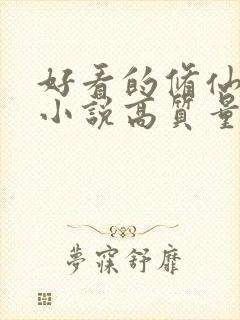 好看的修仙
小説高質量
夢寐舒靡